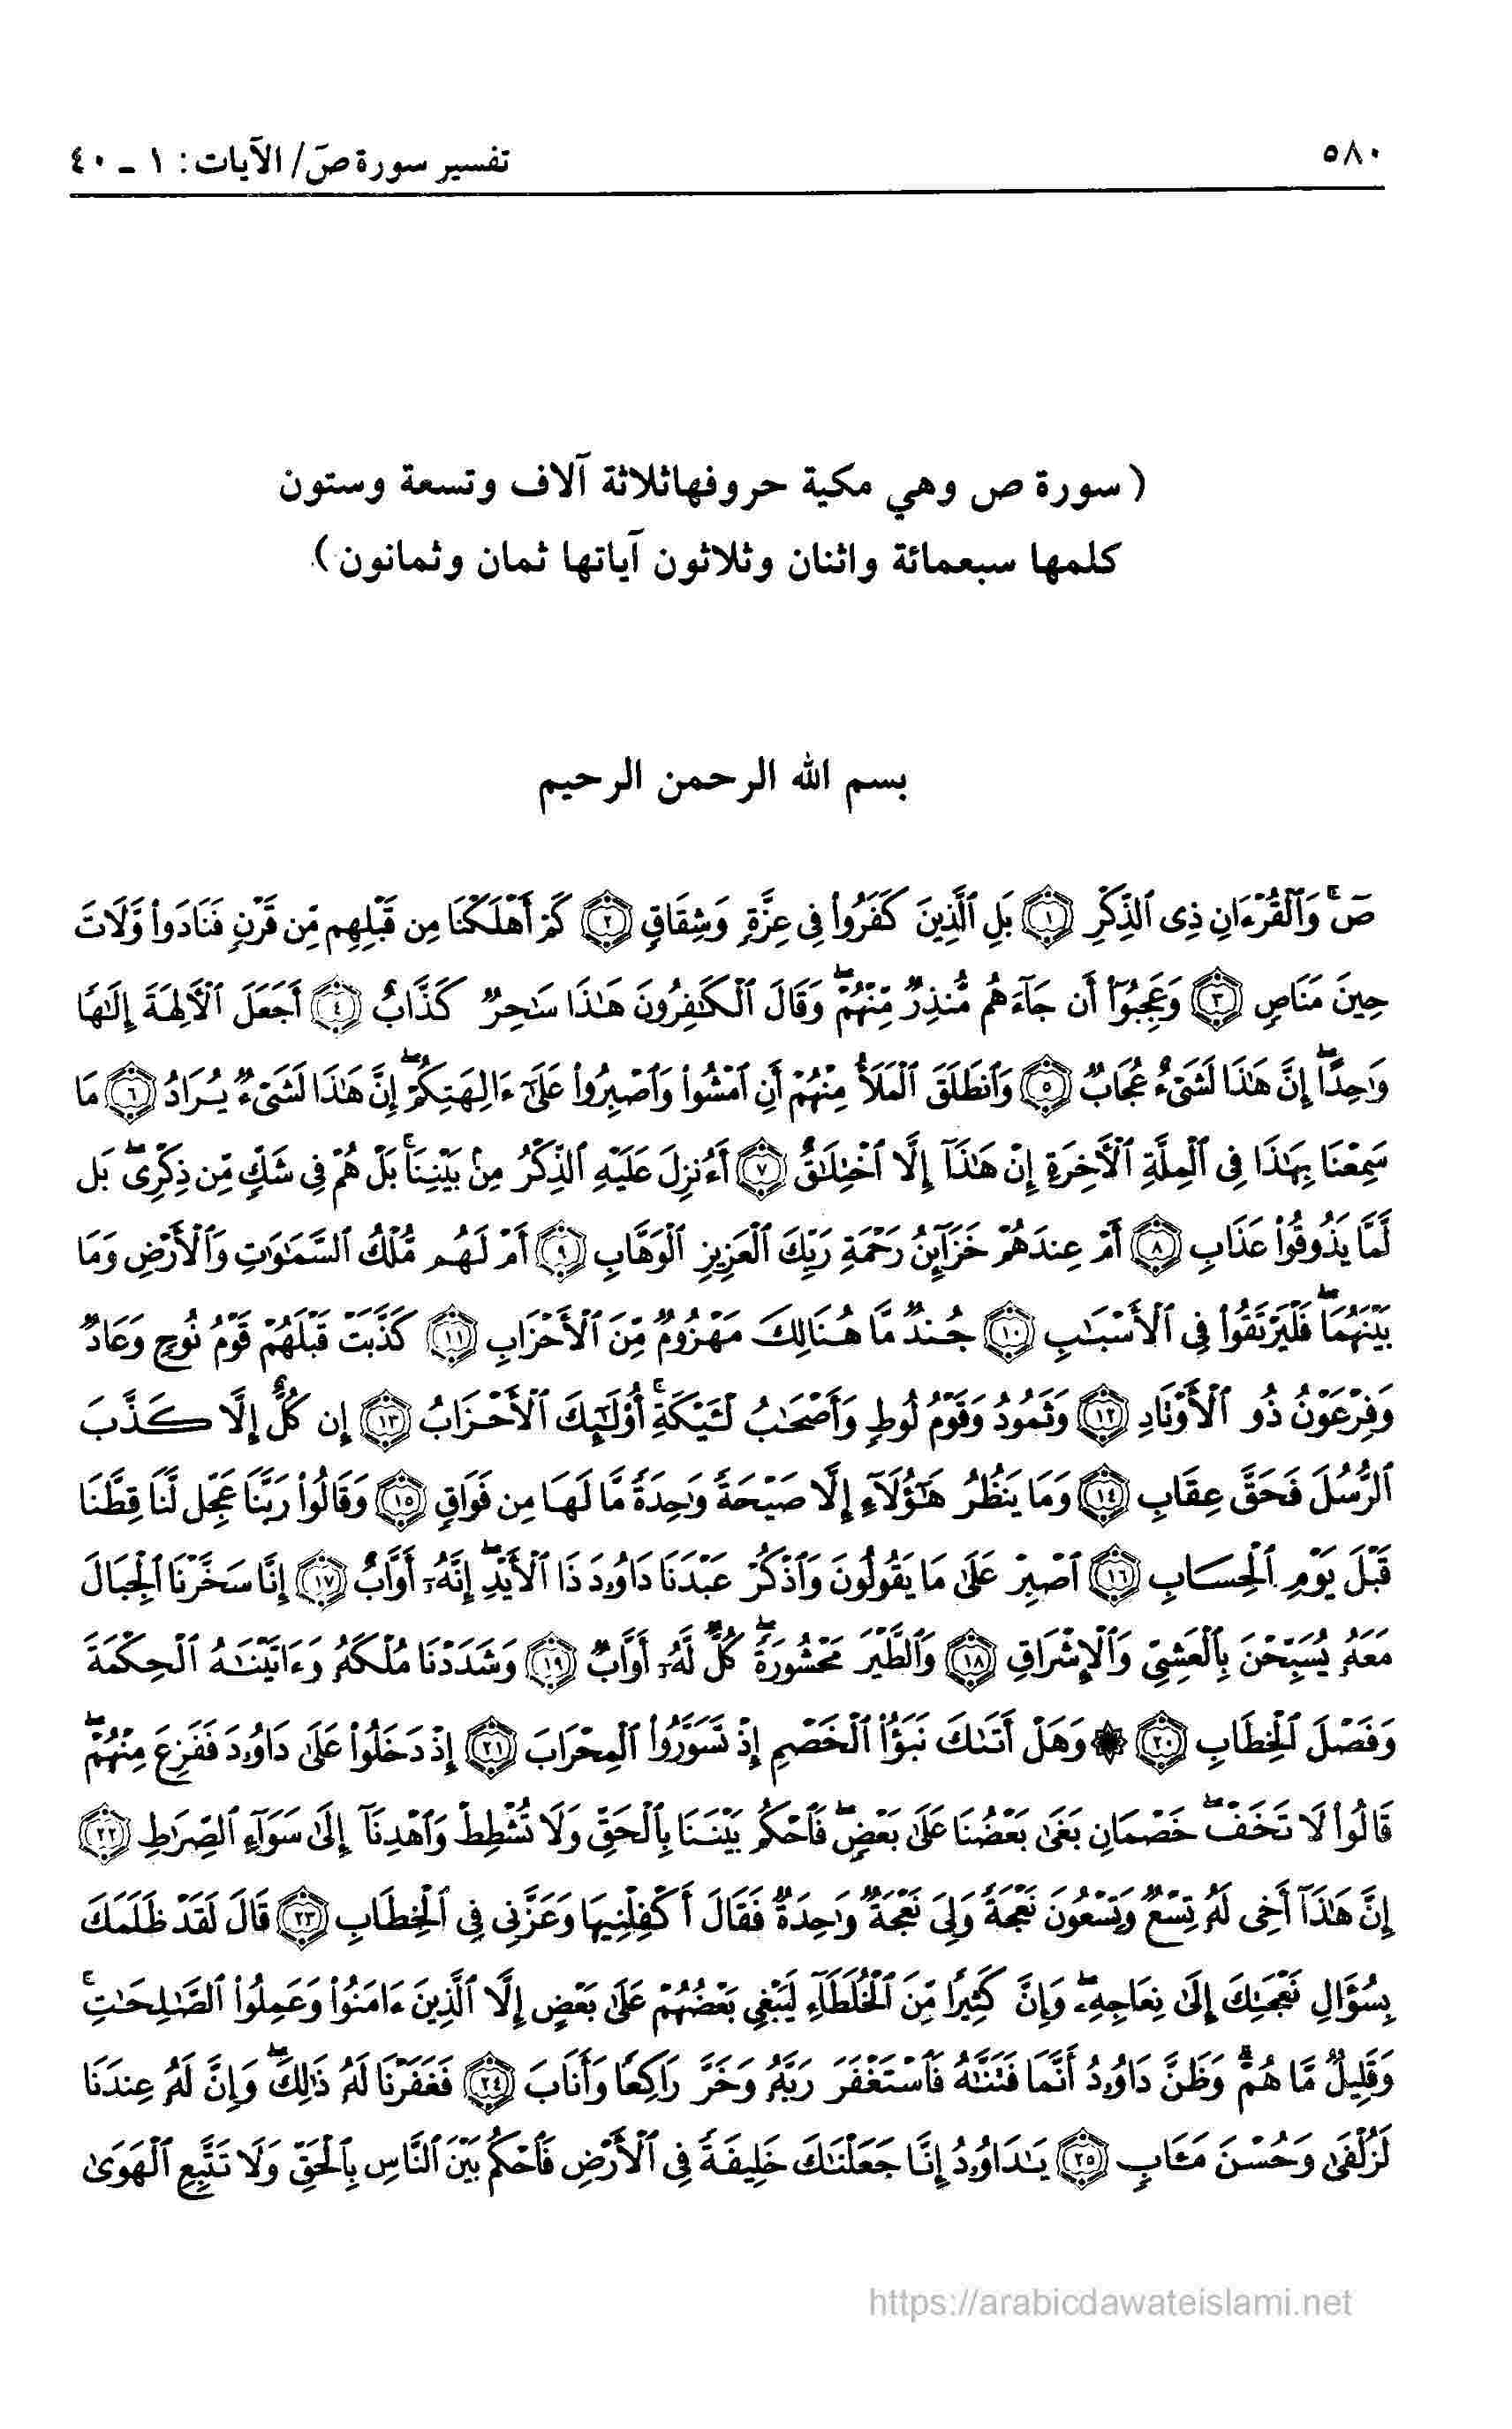 ٥٨٠
تفسير سورة صۤ/ الآيات: ١ ـ ٤٠
( سورة ص وهي مكية حروفهاثلاثة آلاف وتسعة وستون
كلمها سبعمائة واثنان وثلاثون آياتها ثمان وثمانون)
بسم الله الرحمن الرحيم
صٓۚ وَٱلۡقُرۡءَانِ ذِى ٱلذِّكۡرِ ١ بَلِ ٱلَّذِينَ كَفَرُواْ فِى عِزَّةٍ وَشِقَاقٍ ٢ كَمۡ أَهۡلَكۡنَا مِن قَبۡلِهِم مِّن قَرۡنٍ فَنَادَواْ وَّلَاتَ
حِينَ مَنَاصٍ ٣ وَعَجِبُوٓاْ أَن جَآءَهُم مُّنذِرٌ مِّنۡهُمۡۖ وَقَالَ ٱلۡكَٰفِرُونَ هَٰذَا سَٰحِرٌ كَذَّابٌ ٤ أَجَعَلَ ٱلۡأٓلِهَةَ إِلَٰهًا
وَٰحِدًاۖ إِنَّ هَٰذَا لَشَىۡءٌ عُجَابٌ ٥ وَٱنطَلَقَ ٱلۡمَلَأُ مِنۡهُمۡ أَنِ ٱمۡشُواْ وَٱصۡبِرُواْ عَلَىٰٓ ءَالِهَتِكُمۡۖ إِنَّ هَٰذَا لَشَىۡءٌ يُرَادُ ٦ مَا
سَمِعۡنَا بِهَٰذَا فِى ٱلۡمِلَّةِ ٱلۡأٓخِرَةِ إِنۡ هَٰذَآ إِلَّا ٱخۡتِلَٰقٌ ٧ أَءُنزِلَ عَلَيۡهِ ٱلذِّكۡرُ مِنۢ بَيۡنِنَاۚ بَلۡ هُمۡ فِى شَكٍّ مِّن ذِكۡرِىۖ بَل
لَّمَّا يَذُوقُواْ عَذَابِ ٨ أَمۡ عِندَهُمۡ خَزَآئِنُ رَحۡمَةِ رَبِّكَ ٱلۡعَزِيزِ ٱلۡوَهَّابِ ٩ أَمۡ لَهُم مُّلۡكُ ٱلسَّمَٰوَٰتِ وَٱلۡأَرۡضِ وَمَا
بَيۡنَهُمَاۖ فَلۡيَرۡتَقُواْ فِى ٱلۡأَسۡبَٰبِ ١٠ جُندٌ مَّا هُنَالِكَ مَهۡزُومٌ مِّنَ ٱلۡأَحۡزَابِ ١١ كَذَّبَتۡ قَبۡلَهُمۡ قَوۡمُ نُوحٍ وَعَادٌ
وَفِرۡعَوۡنُ ذُو ٱلۡأَوۡتَادِ ١٢ وَثَمُودُ وَقَوۡمُ لُوطٍ وَأَصۡحَٰبُ لۡـَٔيۡكَةِۚ أُوْلَٰٓئِكَ ٱلۡأَحۡزَابُ ١٣ إِن كُلٌّ إِلَّا كَذَّبَ
ٱلرُّسُلَ فَحَقَّ عِقَابِ ١٤ وَمَا يَنظُرُ هَٰٓؤُلَآءِ إِلَّا صَيۡحَةً وَٰحِدَةً مَّا لَهَا مِن فَوَاقٍ ١٥ وَقَالُواْ رَبَّنَا عَجِّل لَّنَا قِطَّنَا
قَبۡلَ يَوۡمِ ٱلۡحِسَابِ ١٦ ٱصۡبِرۡ عَلَىٰ مَا يَقُولُونَ وَٱذۡكُرۡ عَبۡدَنَا دَاوُۥدَ ذَا ٱلۡأَيۡدِۖ إِنَّهُۥٓ أَوَّابٌ ١٧ إِنَّا سَخَّرۡنَا ٱلۡجِبَالَ
مَعَهُۥ يُسَبِّحۡنَ بِٱلۡعَشِىِّ وَٱلۡإِشۡرَاقِ ١٨ وَٱلطَّيۡرَ مَحۡشُورَةًۖ كُلٌّ لَّهُۥٓ أَوَّابٌ ١٩ وَشَدَدۡنَا مُلۡكَهُۥ وَءَاتَيۡنَٰهُ ٱلۡحِكۡمَةَ
وَفَصۡلَ ٱلۡخِطَابِ ٢٠ ۞ وَهَلۡ أَتَىٰكَ نَبَؤُاْ ٱلۡخَصۡمِ إِذۡ تَسَوَّرُواْ ٱلۡمِحۡرَابَ ٢١ إِذۡ دَخَلُواْ عَلَىٰ دَاوُۥدَ فَفَزِعَ مِنۡهُمۡۖ
قَالُواْ لَا تَخَفۡۖ خَصۡمَانِ بَغَىٰ بَعۡضُنَا عَلَىٰ بَعۡضٍ فَٱحۡكُم بَيۡنَنَا بِٱلۡحَقِّ وَلَا تُشۡطِطۡ وَٱهۡدِنَآ إِلَىٰ سَوَآءِ ٱلصِّرَٰطِ ٢٢
إِنَّ هَٰذَآ أَخِى لَهُۥ تِسۡعٌ وَتِسۡعُونَ نَعۡجَةً وَلِىَ نَعۡجَةٌ وَٰحِدَةٌ فَقَالَ أَكۡفِلۡنِيهَا وَعَزَّنِى فِى ٱلۡخِطَابِ ٢٣ قَالَ لَقَدۡ ظَلَمَكَ
بِسُؤَالِ نَعۡجَتِكَ إِلَىٰ نِعَاجِهِۦۖ وَإِنَّ كَثِيرًا مِّنَ ٱلۡخُلَطَآءِ لَيَبۡغِى بَعۡضُهُمۡ عَلَىٰ بَعۡضٍ إِلَّا ٱلَّذِينَ ءَامَنُواْ وَعَمِلُواْ ٱلصَّٰلِحَٰتِ
وَقَلِيلٌ مَّا هُمۡۗ وَظَنَّ دَاوُۥدُ أَنَّمَا فَتَنَّٰهُ فَٱسۡتَغۡفَرَ رَبَّهُۥ وَخَرَّ رَاكِعًا وَأَنَابَ ٢٤ فَغَفَرۡنَا لَهُۥ ذَٰلِكَۖ وَإِنَّ لَهُۥ عِندَنَا
لَزُلۡفَىٰ وَحُسۡنَ مَـَٔابٍ ٢٥ يَٰدَاوُۥدُ إِنَّا جَعَلۡنَٰكَ خَلِيفَةً فِى ٱلۡأَرۡضِ فَٱحۡكُم بَيۡنَ ٱلنَّاسِ بِٱلۡحَقِّ وَلَا تَتَّبِعِ ٱلۡهَوَىٰ
https://arabicdawateislami.net